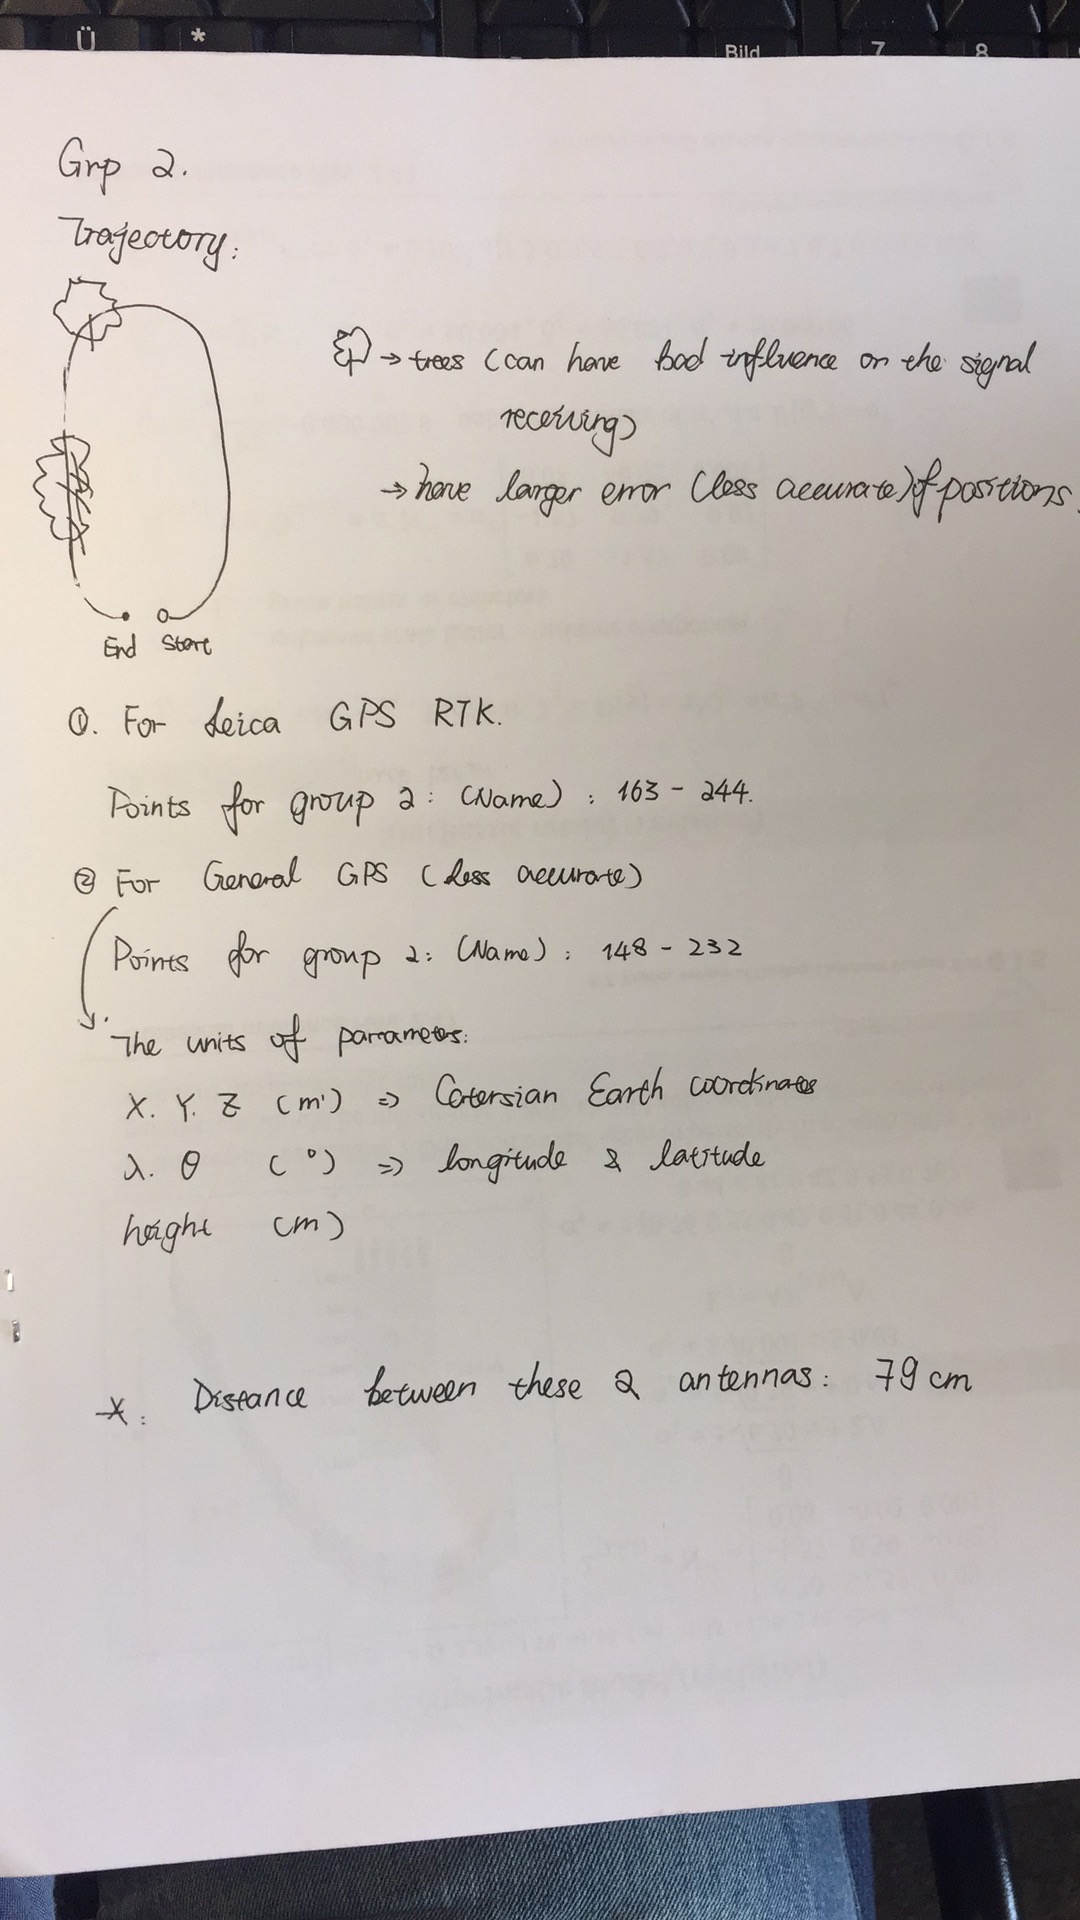 Ü
*
Bild
7
8
Grp 2.
Trajectory:
→ trees (can have bad influence on the signal
receiving)
→ have larger error (less accurate) of positions.
End Start
①. For Leica GPS RTK.
Points for group 2: (Name) : 163 - 244.
② For General GPS (less accurate)
Points for group 2: (Name) : 148 - 232
The units of parameters:
X. Y. Z (m) => Catersian Earth coordinates
λ. θ (°) => longitude & latitude
height (m)
*: Distance between these 2 antennas: 79 cm